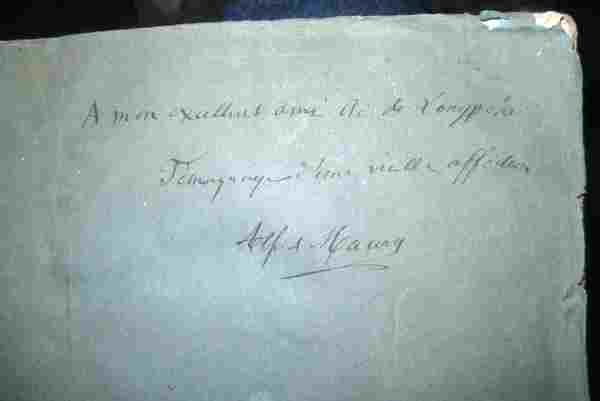 A mon excellent ami Ad. de Longpérier
Témoignage d'une vieille affection
Alf d Maury